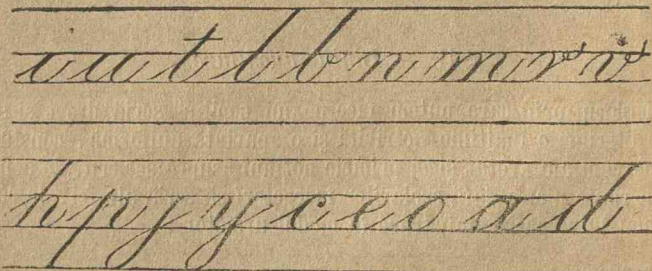 i u t l b n m r v
h p j y c e o a d